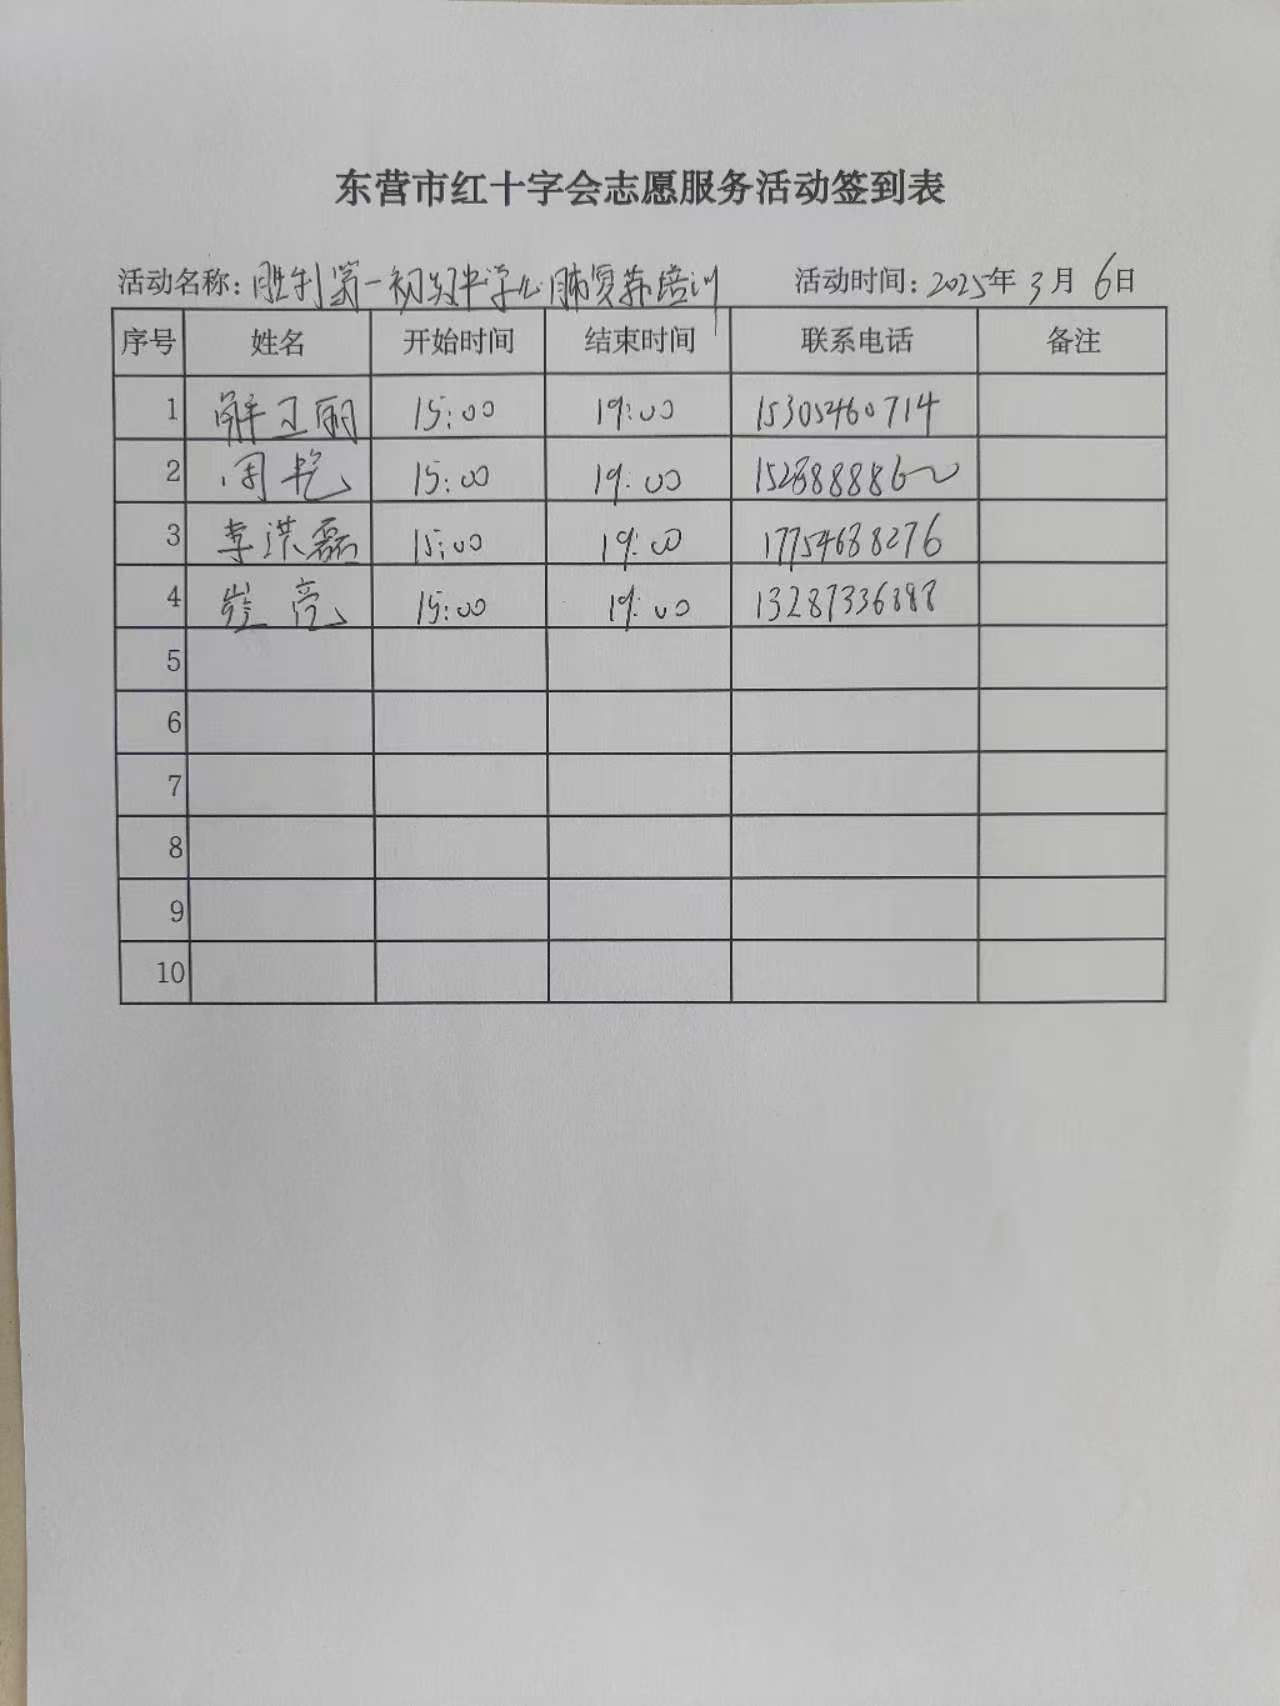 东营市红十字会志愿服务活动签到表
活动名称：胜利第一初级中学心肺复苏培训 活动时间：2025年3月6日
序号 姓名 开始时间 结束时间 联系电话 备注
1 解卫丽 15:00 19:00 15305460714
2 周艳 15:00 19:00
3 李洪磊 15:00 19:00 17754688276
4 崔亮 15:00 19:00
5
6
7
8
9
10